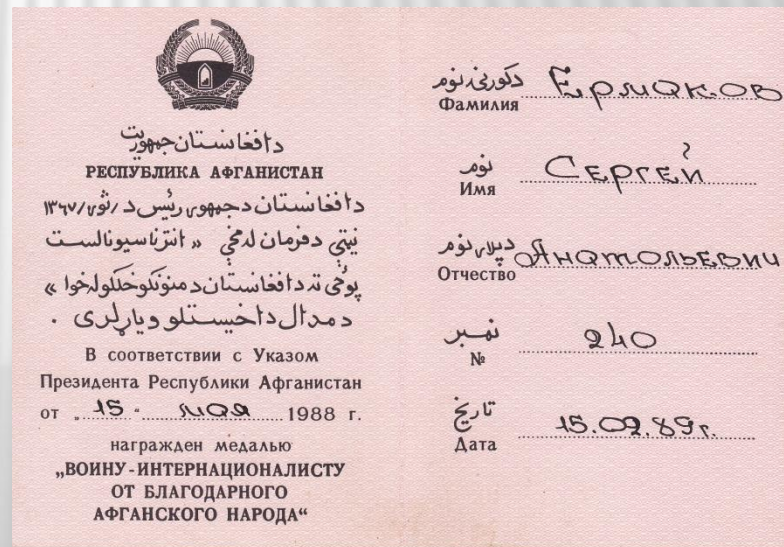 دافغانستان جمهوریت
РЕСПУБЛИКА АФГАНИСТАН
دافغانستان دجمهوری رئیس د /ثور/۱۳۶۷
نیټې دفرمان له مخې « انترناسیونالست
پوځي ته دافغانستان دمنونکو خلکو له خوا »
دمدال داخیستلو ویاړ لری .
В соответствии с Указом
Президента Республики Афганистан
от „15“ мая 1988 г.
награжден медалью
„ВОИНУ-ИНТЕРНАЦИОНАЛИСТУ
ОТ БЛАГОДАРНОГО
АФГАНСКОГО НАРОДА“
دکورنۍ نوم Ермаков
Фамилия
نوم Сергей
Имя
دپلار نوم Анатольевич
Отчество
نمبر 240
№
تاریخ 15.02.89г.
Дата